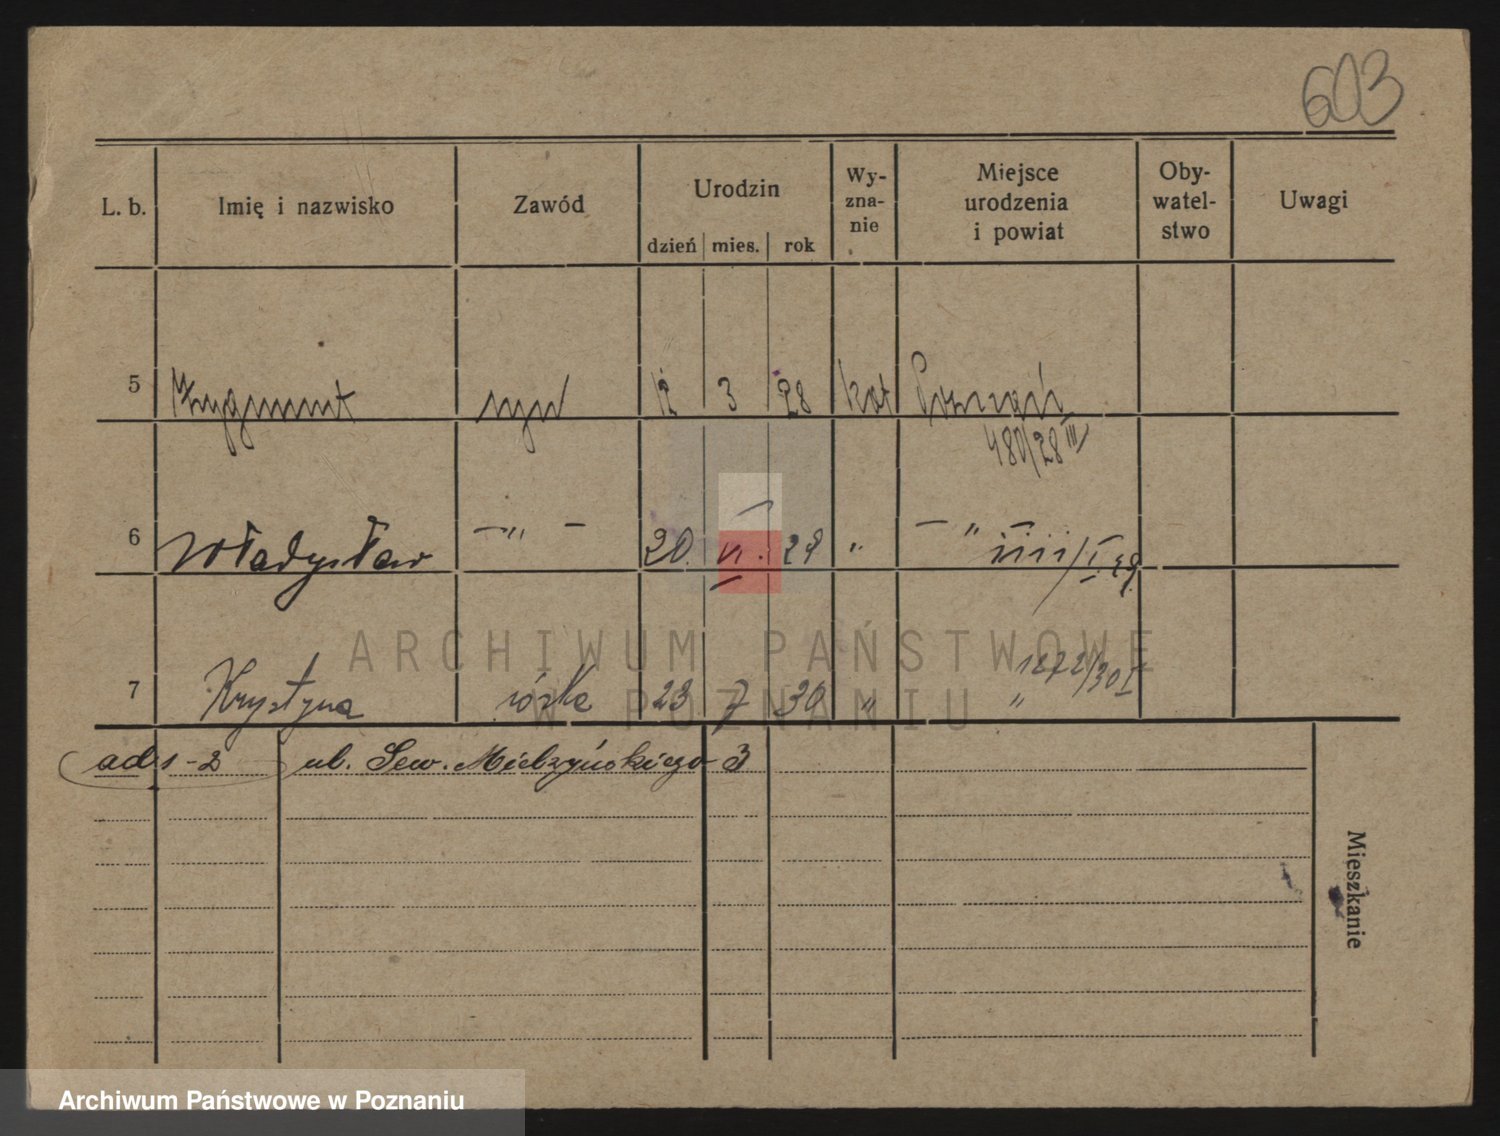 603
L. b. Imię i nazwisko Zawód Urodzin Wy-zna-nie Miejsce urodzenia i powiat Oby-watel-stwo Uwagi
dzień mies. rok
5 Zygmunt syn 12 3 28 kat Poznań
480/28 III
6 Władysław — " — 20. VI. 29 " — " —
1111/I 29.
7 Krystyna córka 23 7 30 " "
1272/30 I
ad 1-2 ul. Sew. Mielżyńskiego 3
Mieszkanie
ARCHIWUM PAŃSTWOWE
W POZNANIU
Archiwum Państwowe w Poznaniu